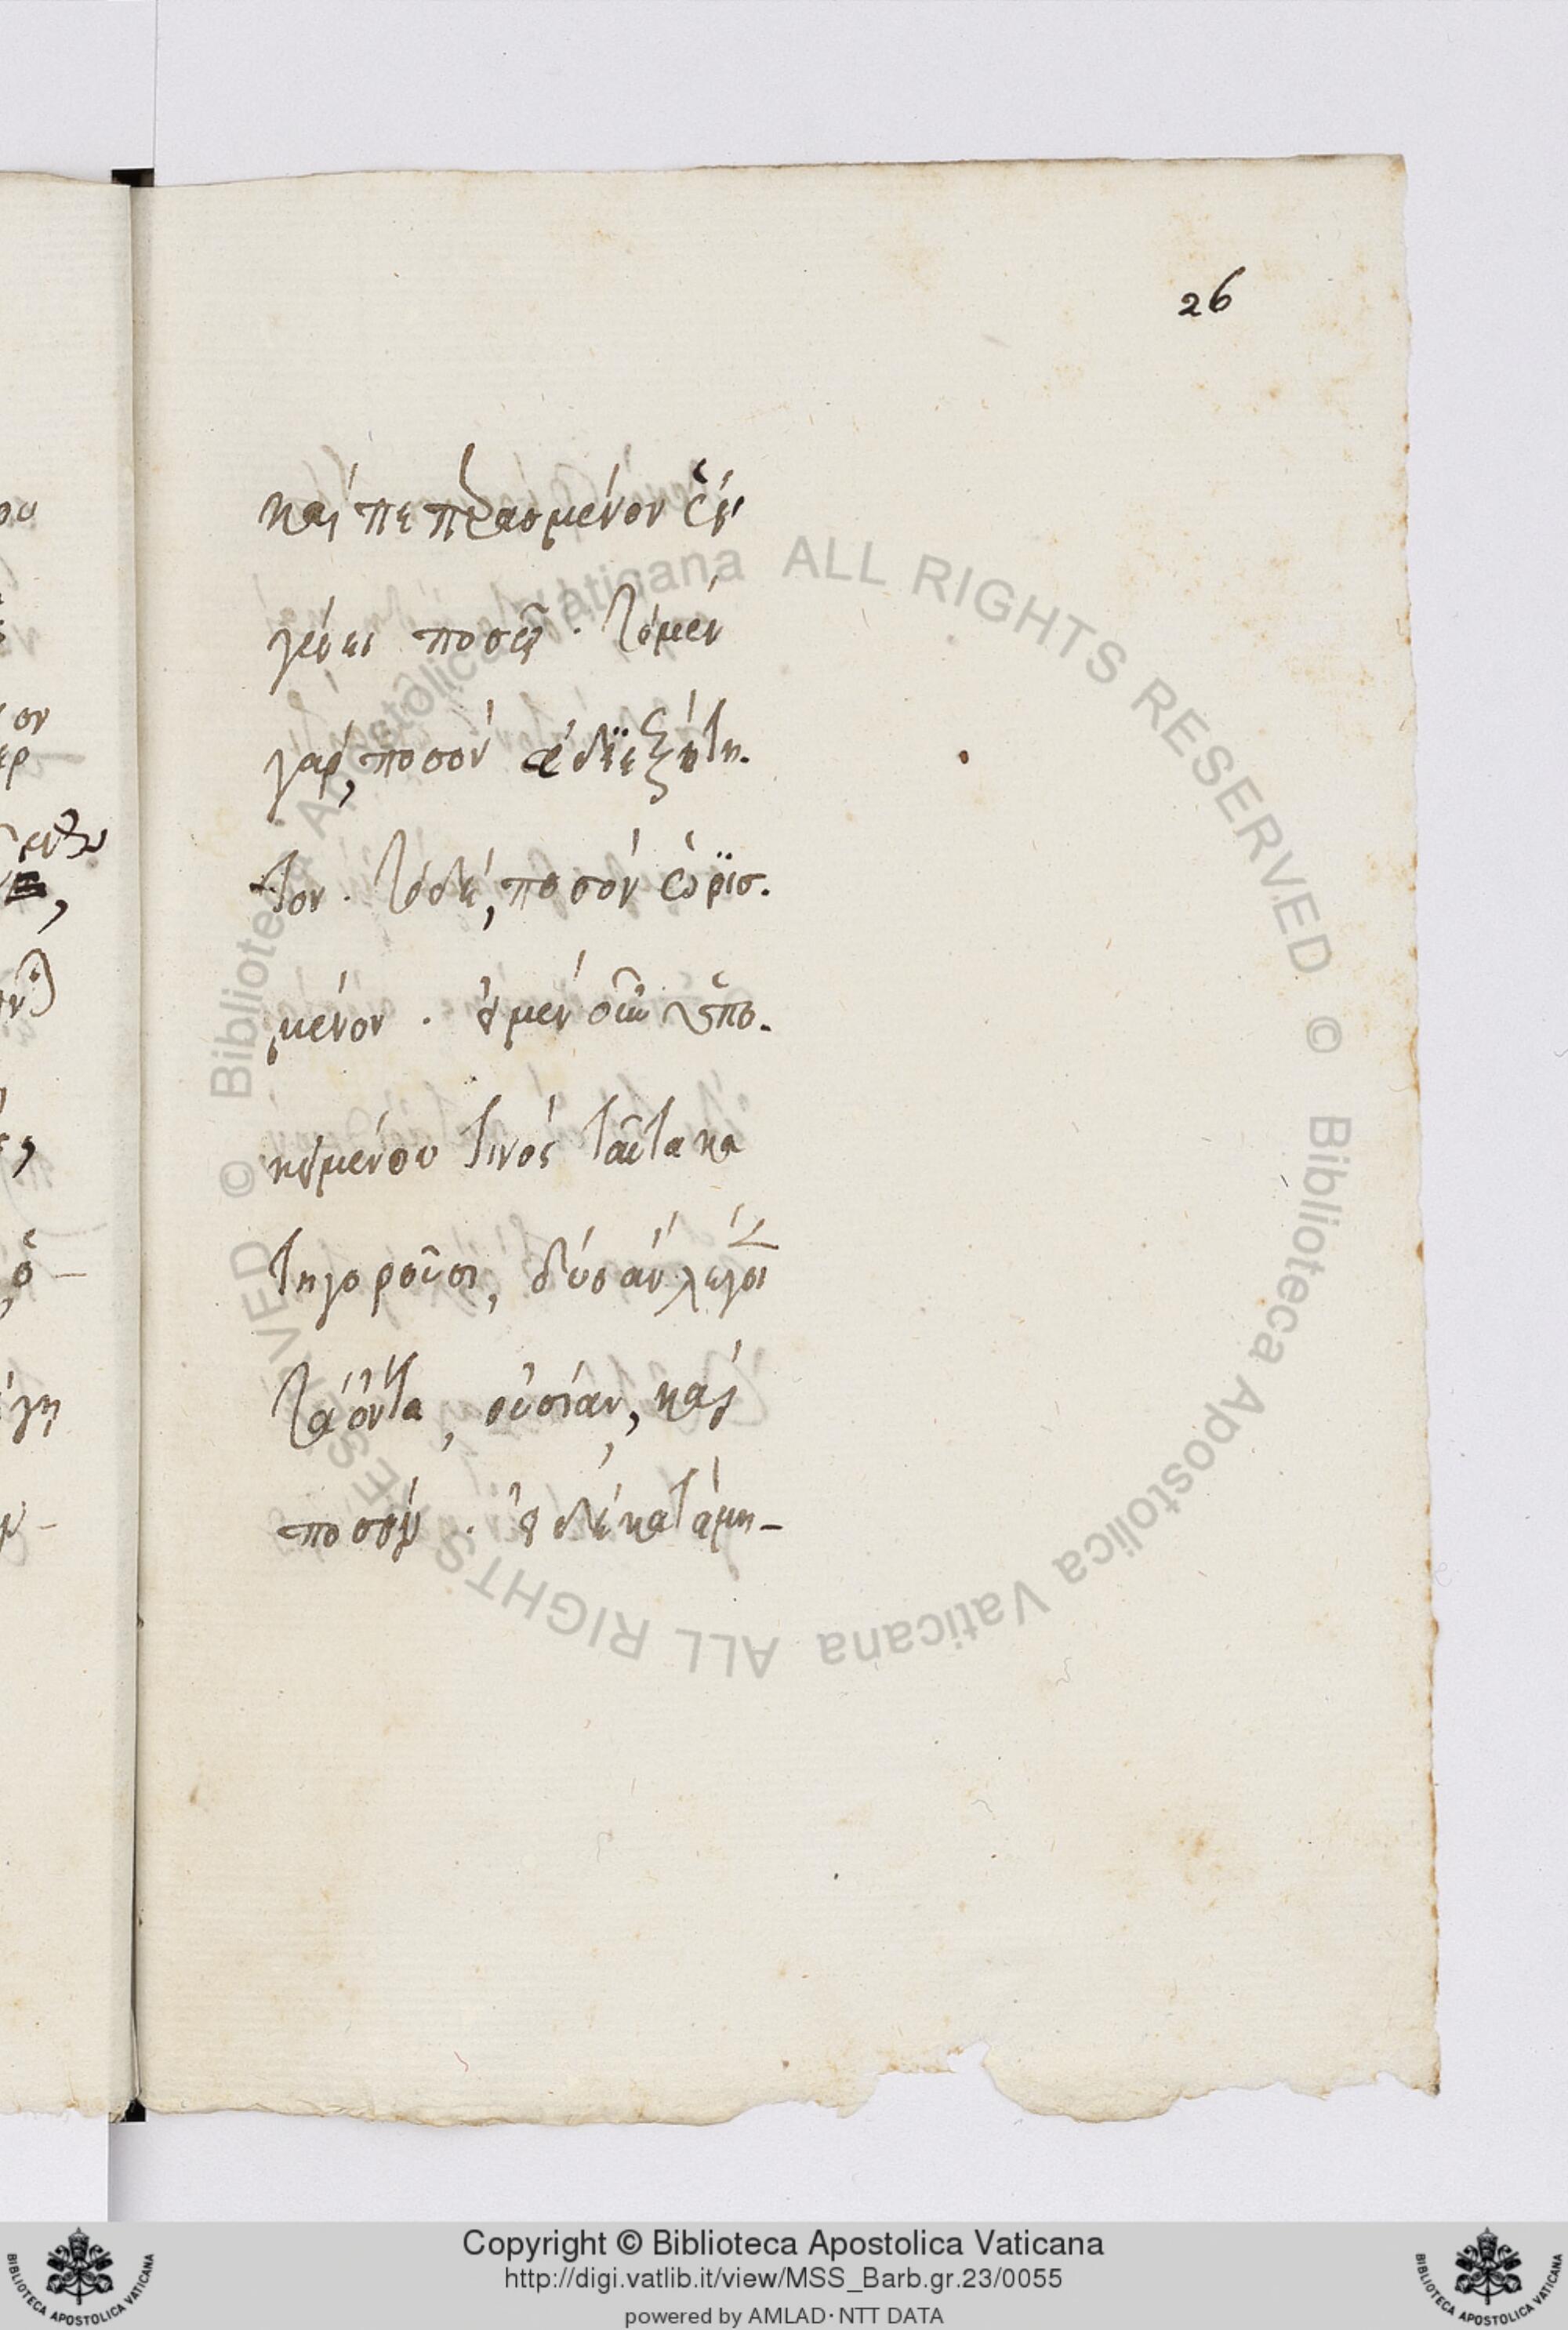 26
καὶ πεπερασμένον ἐν
γένει ποσῷ. τὸ μὲν
γὰρ, ποσὸν ἀδϊεξήτη-
τον. τὸ δὲ, ποσὸν ὡρϊσ-
μένον. ὁ μὲν οὖν ὑπο-
κειμένου τινὸς ταῦτα κα
τηγοροῦσι, δύο ἂν λέγοι
τὰ ὄντα, οὐσίαν, καὶ
ποσόν. ὁ δὲ κατὰ μη-
© Biblioteca Apostolica Vaticana ALL RIGHTS RESERVED © Biblioteca Apostolica Vaticana ALL RIGHTS RESERVED
Copyright © Biblioteca Apostolica Vaticana
http://digi.vatlib.it/view/MSS_Barb.gr.23/0055
powered by AMLAD·NTT DATA
BIBLIOTECA APOSTOLICA VATICANA
BIBLIOTECA APOSTOLICA VATICANA